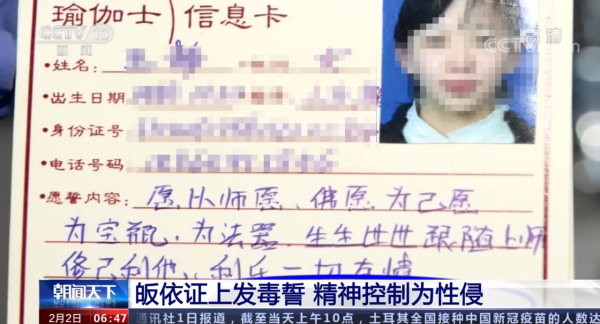 CCTV 13
新闻
瑜伽士）信息卡
•姓名：
•出生日期
•身份证号
•电话号码
•愿誓内容：愿以师愿、佛愿为己愿
为宝瓶、为法器、生生世世跟随上师
修己利他、利乐一切有情
朝闻天下
皈依证上发毒誓 精神控制为性侵
2月2日 06:47 通讯社1日报道，截至当天上午10点，土耳其全国接种中国新冠疫苗的人数达